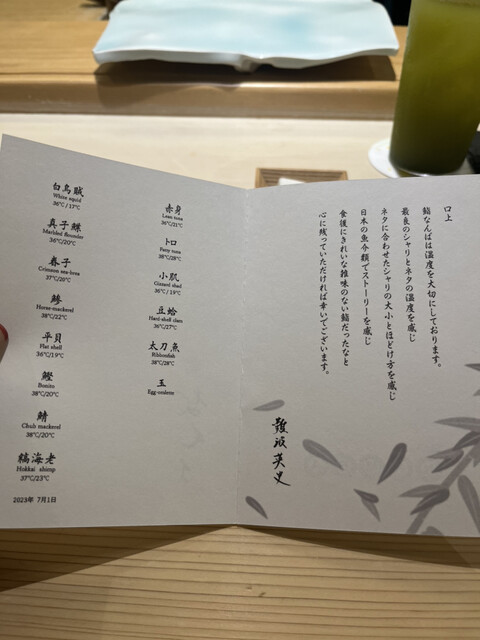 白烏賊
White squid
36℃ / 17℃
真子鰈
Marbled flounder
36℃/20℃
春子
37℃/20℃
鯵
Horse-mackerel
38℃/22℃
平貝
Flat shell
36℃/19℃
鰹
Bonito
38℃/20℃
鯖
Chub mackerel
38℃/20℃
縞海老
Hokkai shimp
37℃/23℃
2023年 7月1日
赤身
Lean tuna
36℃/21℃
トロ
Fatty tuna
38℃/28℃
小肌
Gizzard shad
36℃ / 19℃
豆蛤
Hard-shell clam
36℃/27℃
太刀魚
Ribbonfish
38℃/28℃
玉
Egg-omlette
口上
鮨なんばは温度を大切にしております。
最良のシャリとネタの温度を感じ
ネタに合わせたシャリの大小とほどけ方を感じ
日本の魚介類でストーリーを感じ
食後にきれいな雑味のない鮨だったなと
心に残っていただければ幸いでございます。
難波英史